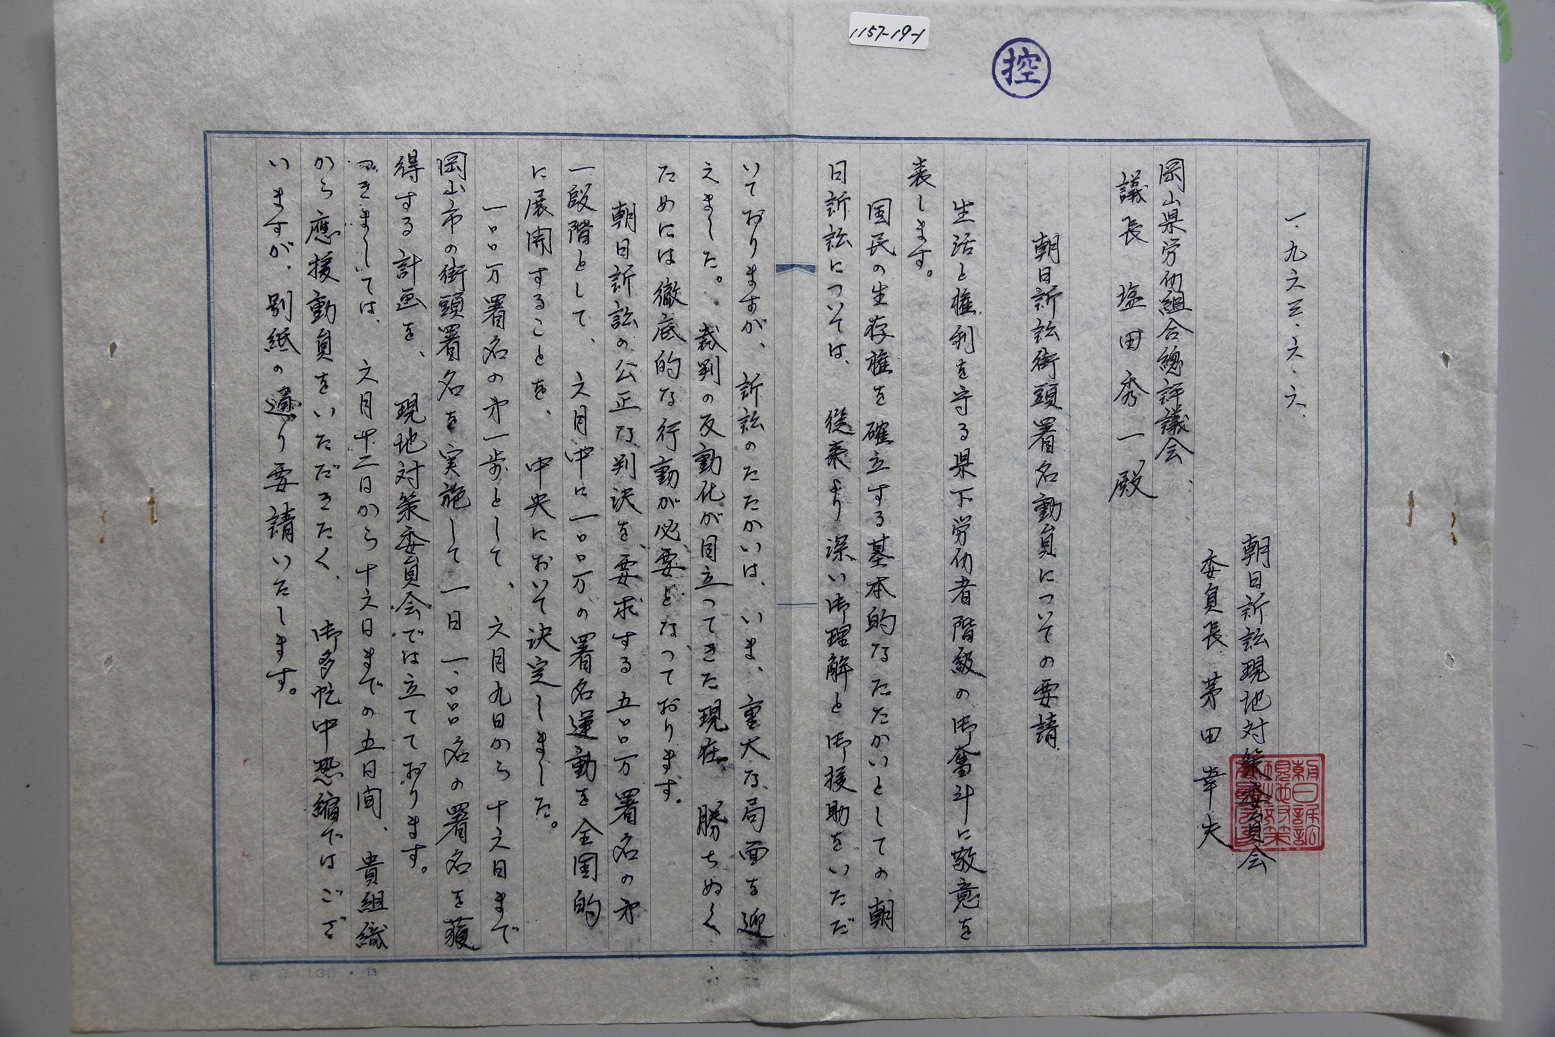 1157-19-1
控
一、九六三、六、六、
朝日訴訟現地対策委員会
委員長 茅田幸夫
岡山県労仂組合總評議会、
議長 塩田秀一殿
朝日訴訟街頭署名動員についての要請
生活と権利を守る県下労仂者階級の御奮斗に敬意を
表します。
国民の生存権を確立する基本的なたたかいとしての朝
日訴訟については、従来より深い御理解と御援助をいただ
いておりますが、訴訟のたたかいは、いま、重大な局面を迎
えました。裁判の反動化が目立ってきた現在、勝ちぬく
ためには徹底的な行動が必要となっております。
朝日訴訟の公正な判決を、要求する五〇〇万署名の才
一段階として、六月中に一〇〇万の署名運動を全国的
に展開することを、中央において決定しました。
一〇〇万署名の才一歩として、六月九日から十六日まで
岡山市の街頭署名を実施して一日一、〇〇〇名の署名を獲
得する計画を、現地対策委員会では立てております。
つきましては、六月十二日から十六日までの五日間、貴組織
から應援動員をいただきたく、御多忙中恐縮ではござ
いますが、別紙の通り要請いたします。